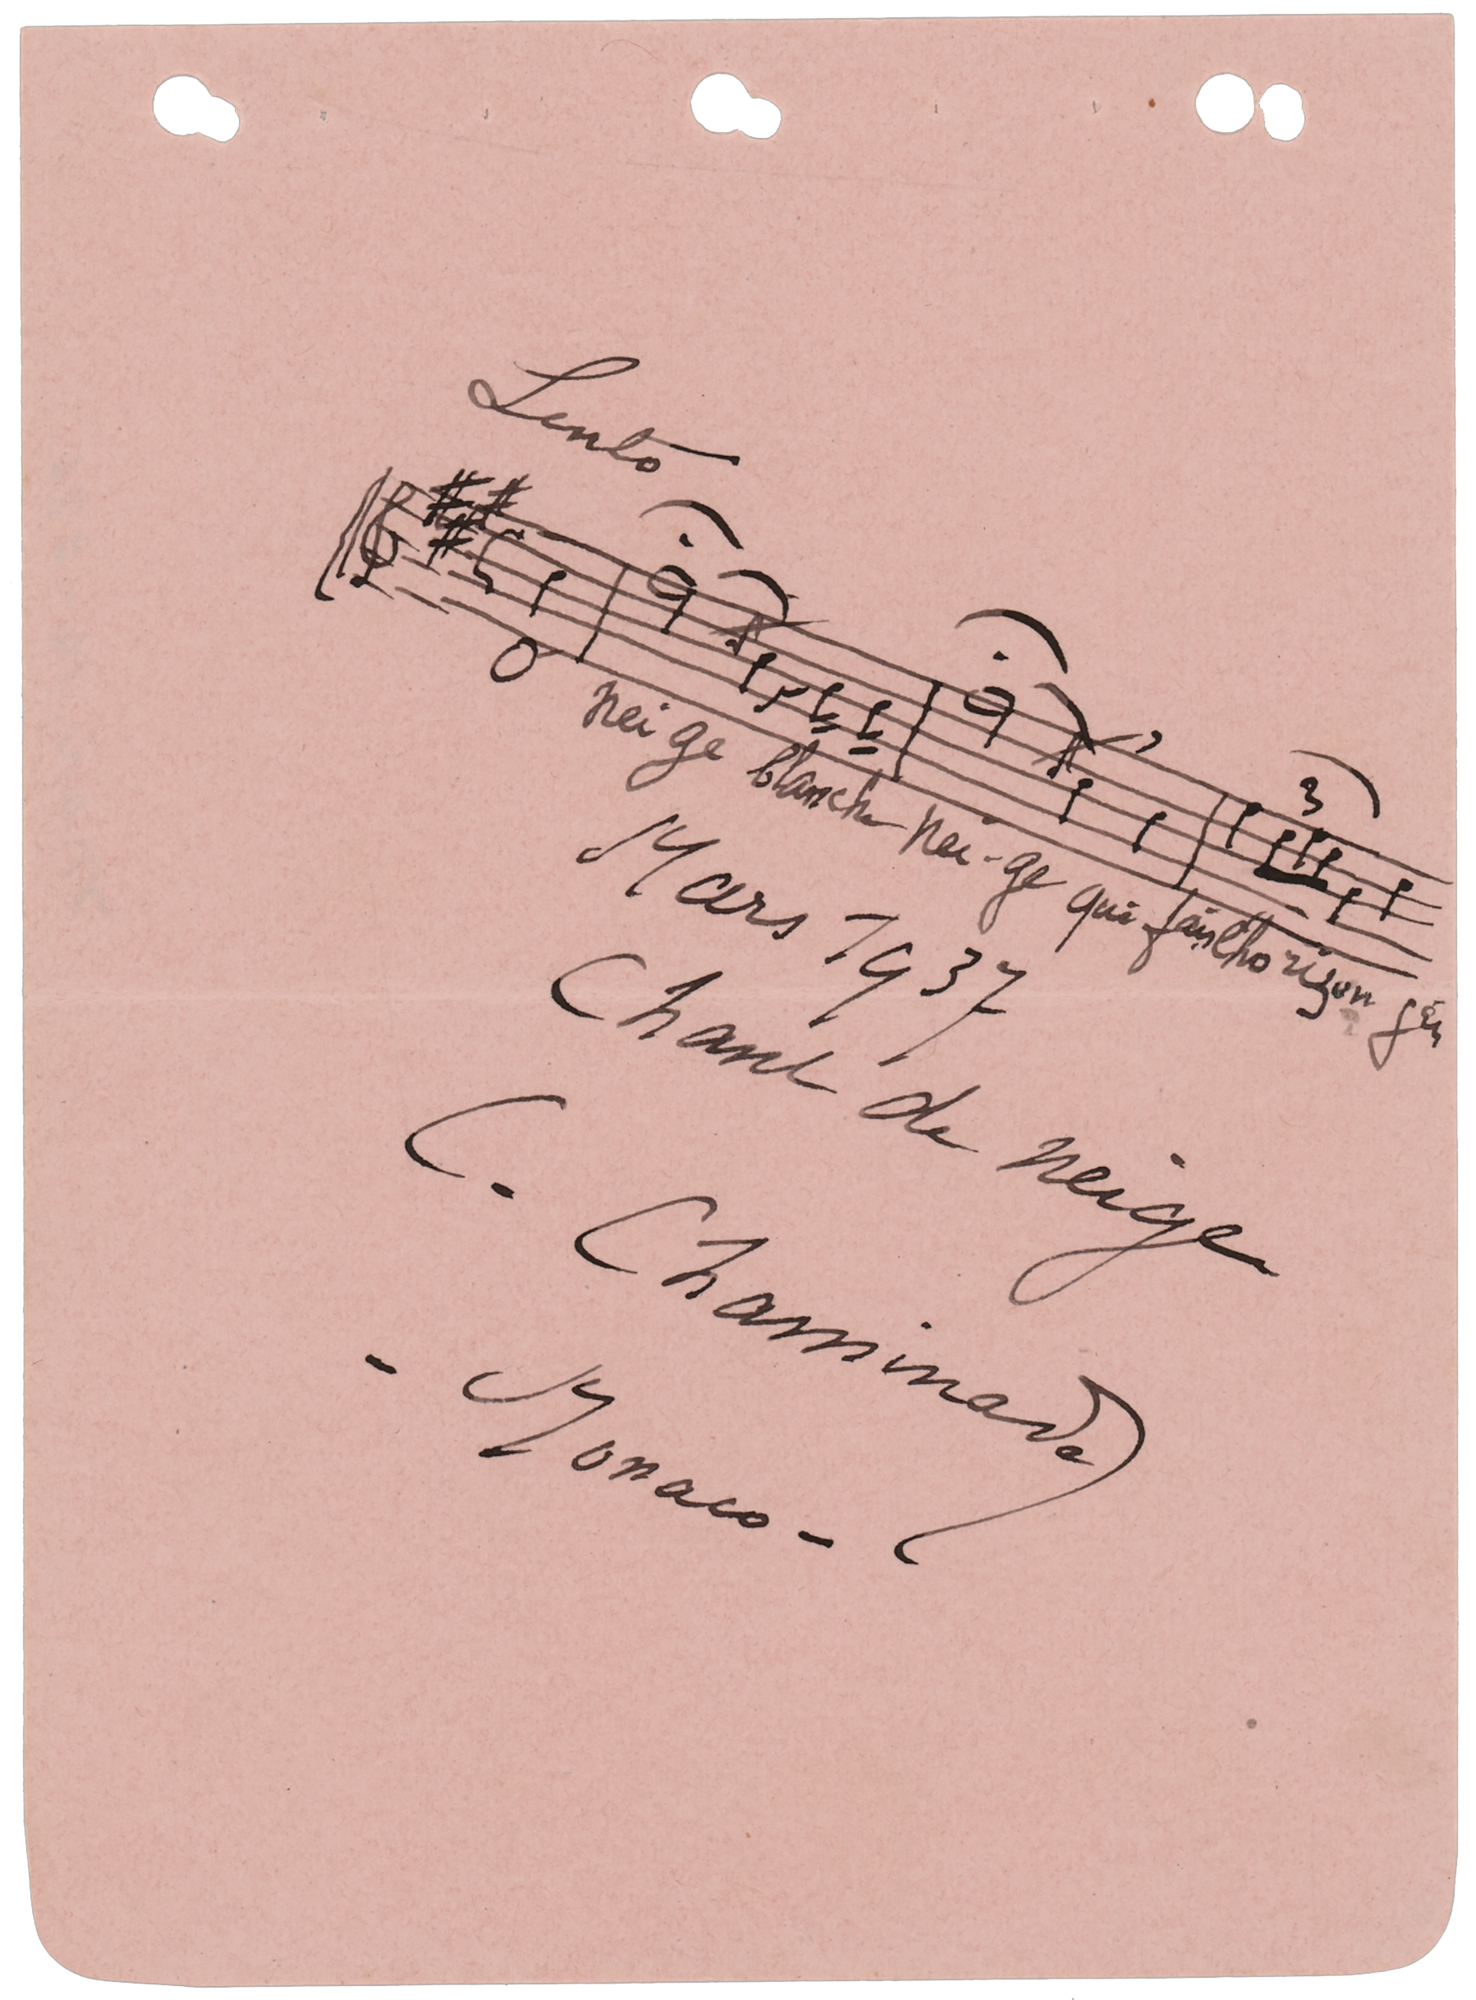 Lento
3
neige blanche nei-ge qui fait l'horizon
Mars 1937
Chant de neige
C. Chaminade
- Monaco -